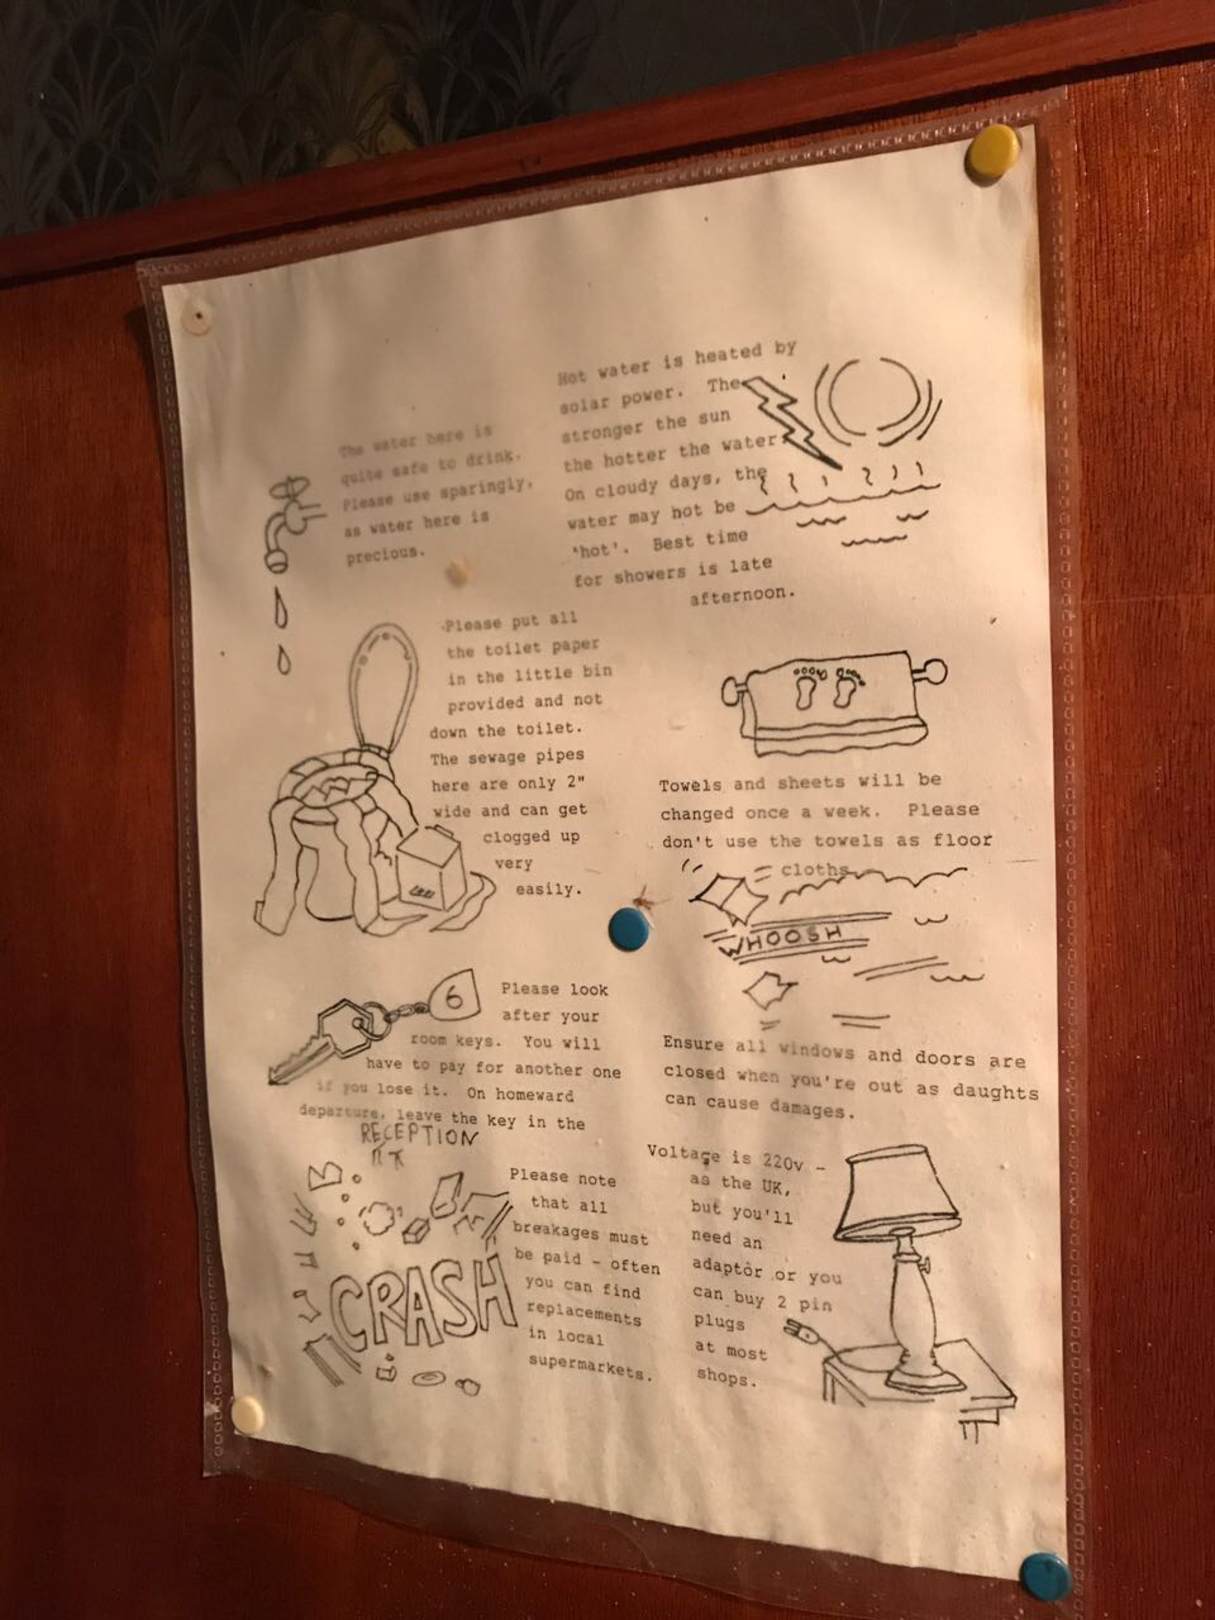 The water here is
quite safe to drink.
Please use sparingly,
as water here is
precious.
Hot water is heated by
solar power. The
stronger the sun
the hotter the water.
On cloudy days, the
water may not be
'hot'. Best time
for showers is late
afternoon.
Please put all
the toilet paper
in the little bin
provided and not
down the toilet.
The sewage pipes
here are only 2"
wide and can get
clogged up
very
easily.
Towels and sheets will be
changed once a week. Please
don't use the towels as floor
cloths
WHOOSH
6
Please look
after your
room keys. You will
have to pay for another one
if you lose it. On homeward
departure, leave the key in the
RECEPTION
Ensure all windows and doors are
closed when you're out as daughts
can cause damages.
CRASH
Please note
that all
breakages must
be paid - often
you can find
replacements
in local
supermarkets.
Voltage is 220v -
as the UK,
but you'll
need an
adaptor or you
can buy 2 pin
plugs
at most
shops.